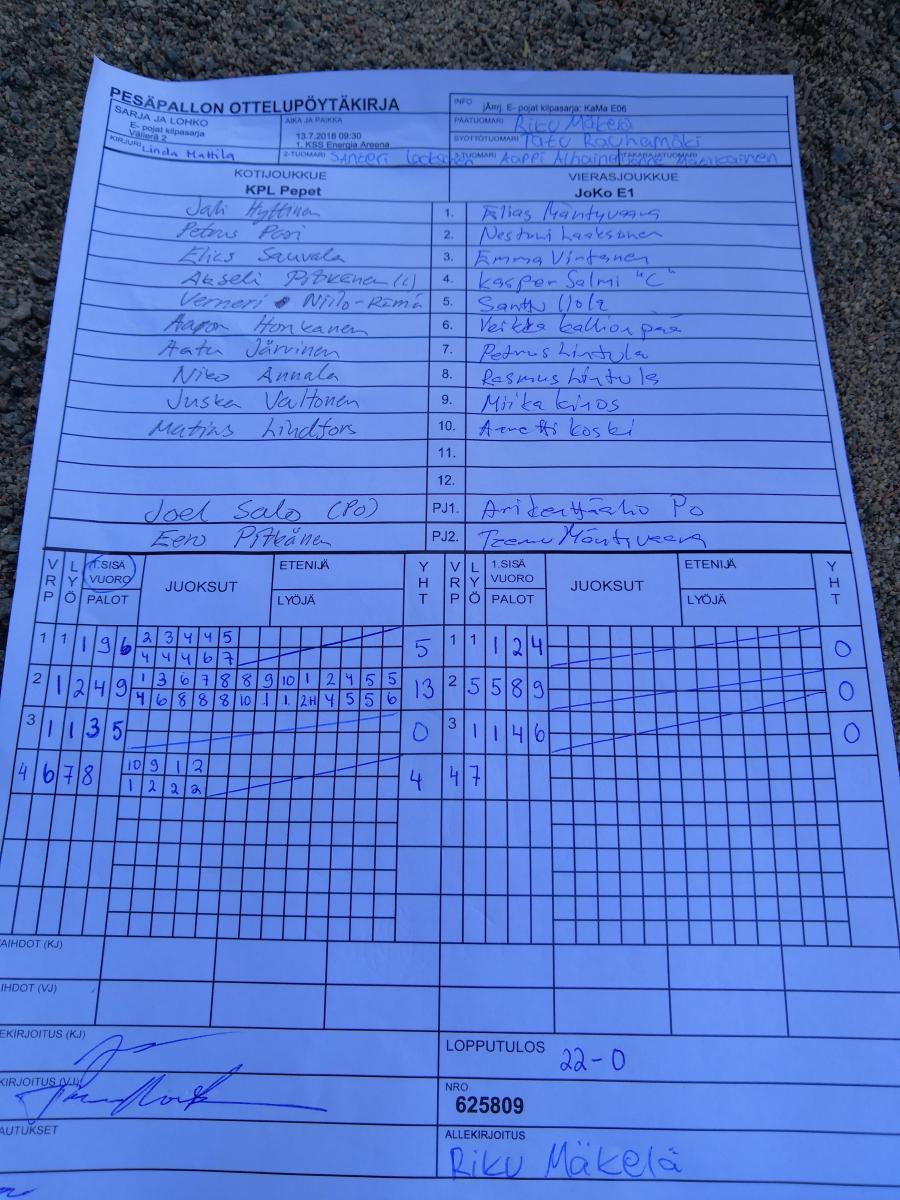 PESÄPALLON OTTELUPÖYTÄKIRJA
INFO jÄrrj. E- pojat kilpasarja: KaMa E06
SARJA JA LOHKO
E- pojat kilpasarja
Välierä 2
AIKA JA PAIKKA
13.7.2018 09:30
1. KSS Energia Areena
PÄÄTUOMARI Riku Mäkelä
SYÖTTÖTUOMARI Tatu Rauhamäki
KIRJURI Linda Mattila
2-TUOMARI Santeri
TAKARAJATUOMARI
KOTIJOUKKUE VIERASJOUKKUE
KPL Pepet JoKo E1
Jali Hyttinen 1. Elias Mäntyvaara
Petrus Pasi 2. Nestori Laaksonen
Elias Sauvala 3. Emma Virtanen
Akseli Pitkänen (c) 4. Kasper Salmi "C"
Verneri Niilo-Rämä 5. Santtu Ilola
Aaron Honkanen 6. Veikka Kallionpää
Aatu Järvinen 7. Petrus Lintula
Niko Annala 8. Rasmus Lintula
Juska Valtonen 9. Miika
Matias Lindfors 10. Koski
11.
12.
Joel Salo (PO) PJ1. Po
Eero Pitkänen PJ2. Teemu Mäntyvaara
VRP LYÖ 1.SISÄ VUORO PALOT JUOKSUT ETENIJÄ LYÖJÄ YHT VRP LYÖ 1.SISÄ VUORO PALOT JUOKSUT ETENIJÄ LYÖJÄ YHT
1 1 1 9 6 2 3 4 4 5 5 1 1 1 2 4 0
4 4 4 6 7
2 1 2 4 9 1 3 6 7 8 8 9 10 1 2 4 5 5 13 2 5 5 8 9 0
4 6 8 8 8 10 1 1 2H 4 5 5 6
3 1 1 3 5 0 3 1 1 4 6 0
4 6 7 8 10 9 1 2 4 4 7
1 2 2 2
AIHDOT (KJ)
IHDOT (VJ)
EKIRJOITUS (KJ)
LOPPUTULOS 22-0
KIRJOITUS (VJ)
NRO
625809
AUTUKSET
ALLEKIRJOITUS
Riku Mäkelä